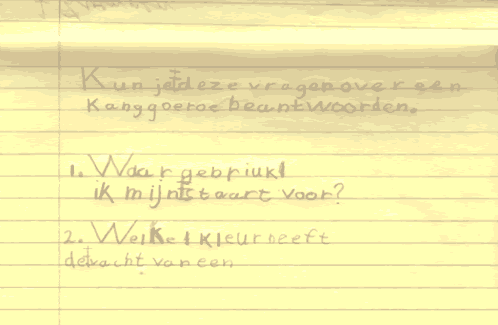 Kun je deze vragen over een
Kanggoeroe beantwoorden.
1. Waar gebriukt
ik mijn staart voor?
2. Welke kleur heeft
de vacht van een